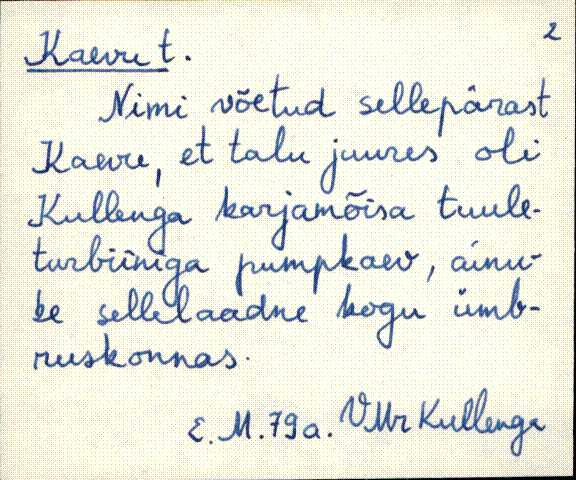 2
Kaevu t.
Nimi võetud sellepärast
Kaevu, et talu juures oli
Kullenga karjamõisa tuule-
turbiiniga pumpkaev, ainu-
ke sellelaadne kogu ümb-
ruskonnas.
E. M. 79a. VMr Kullenga